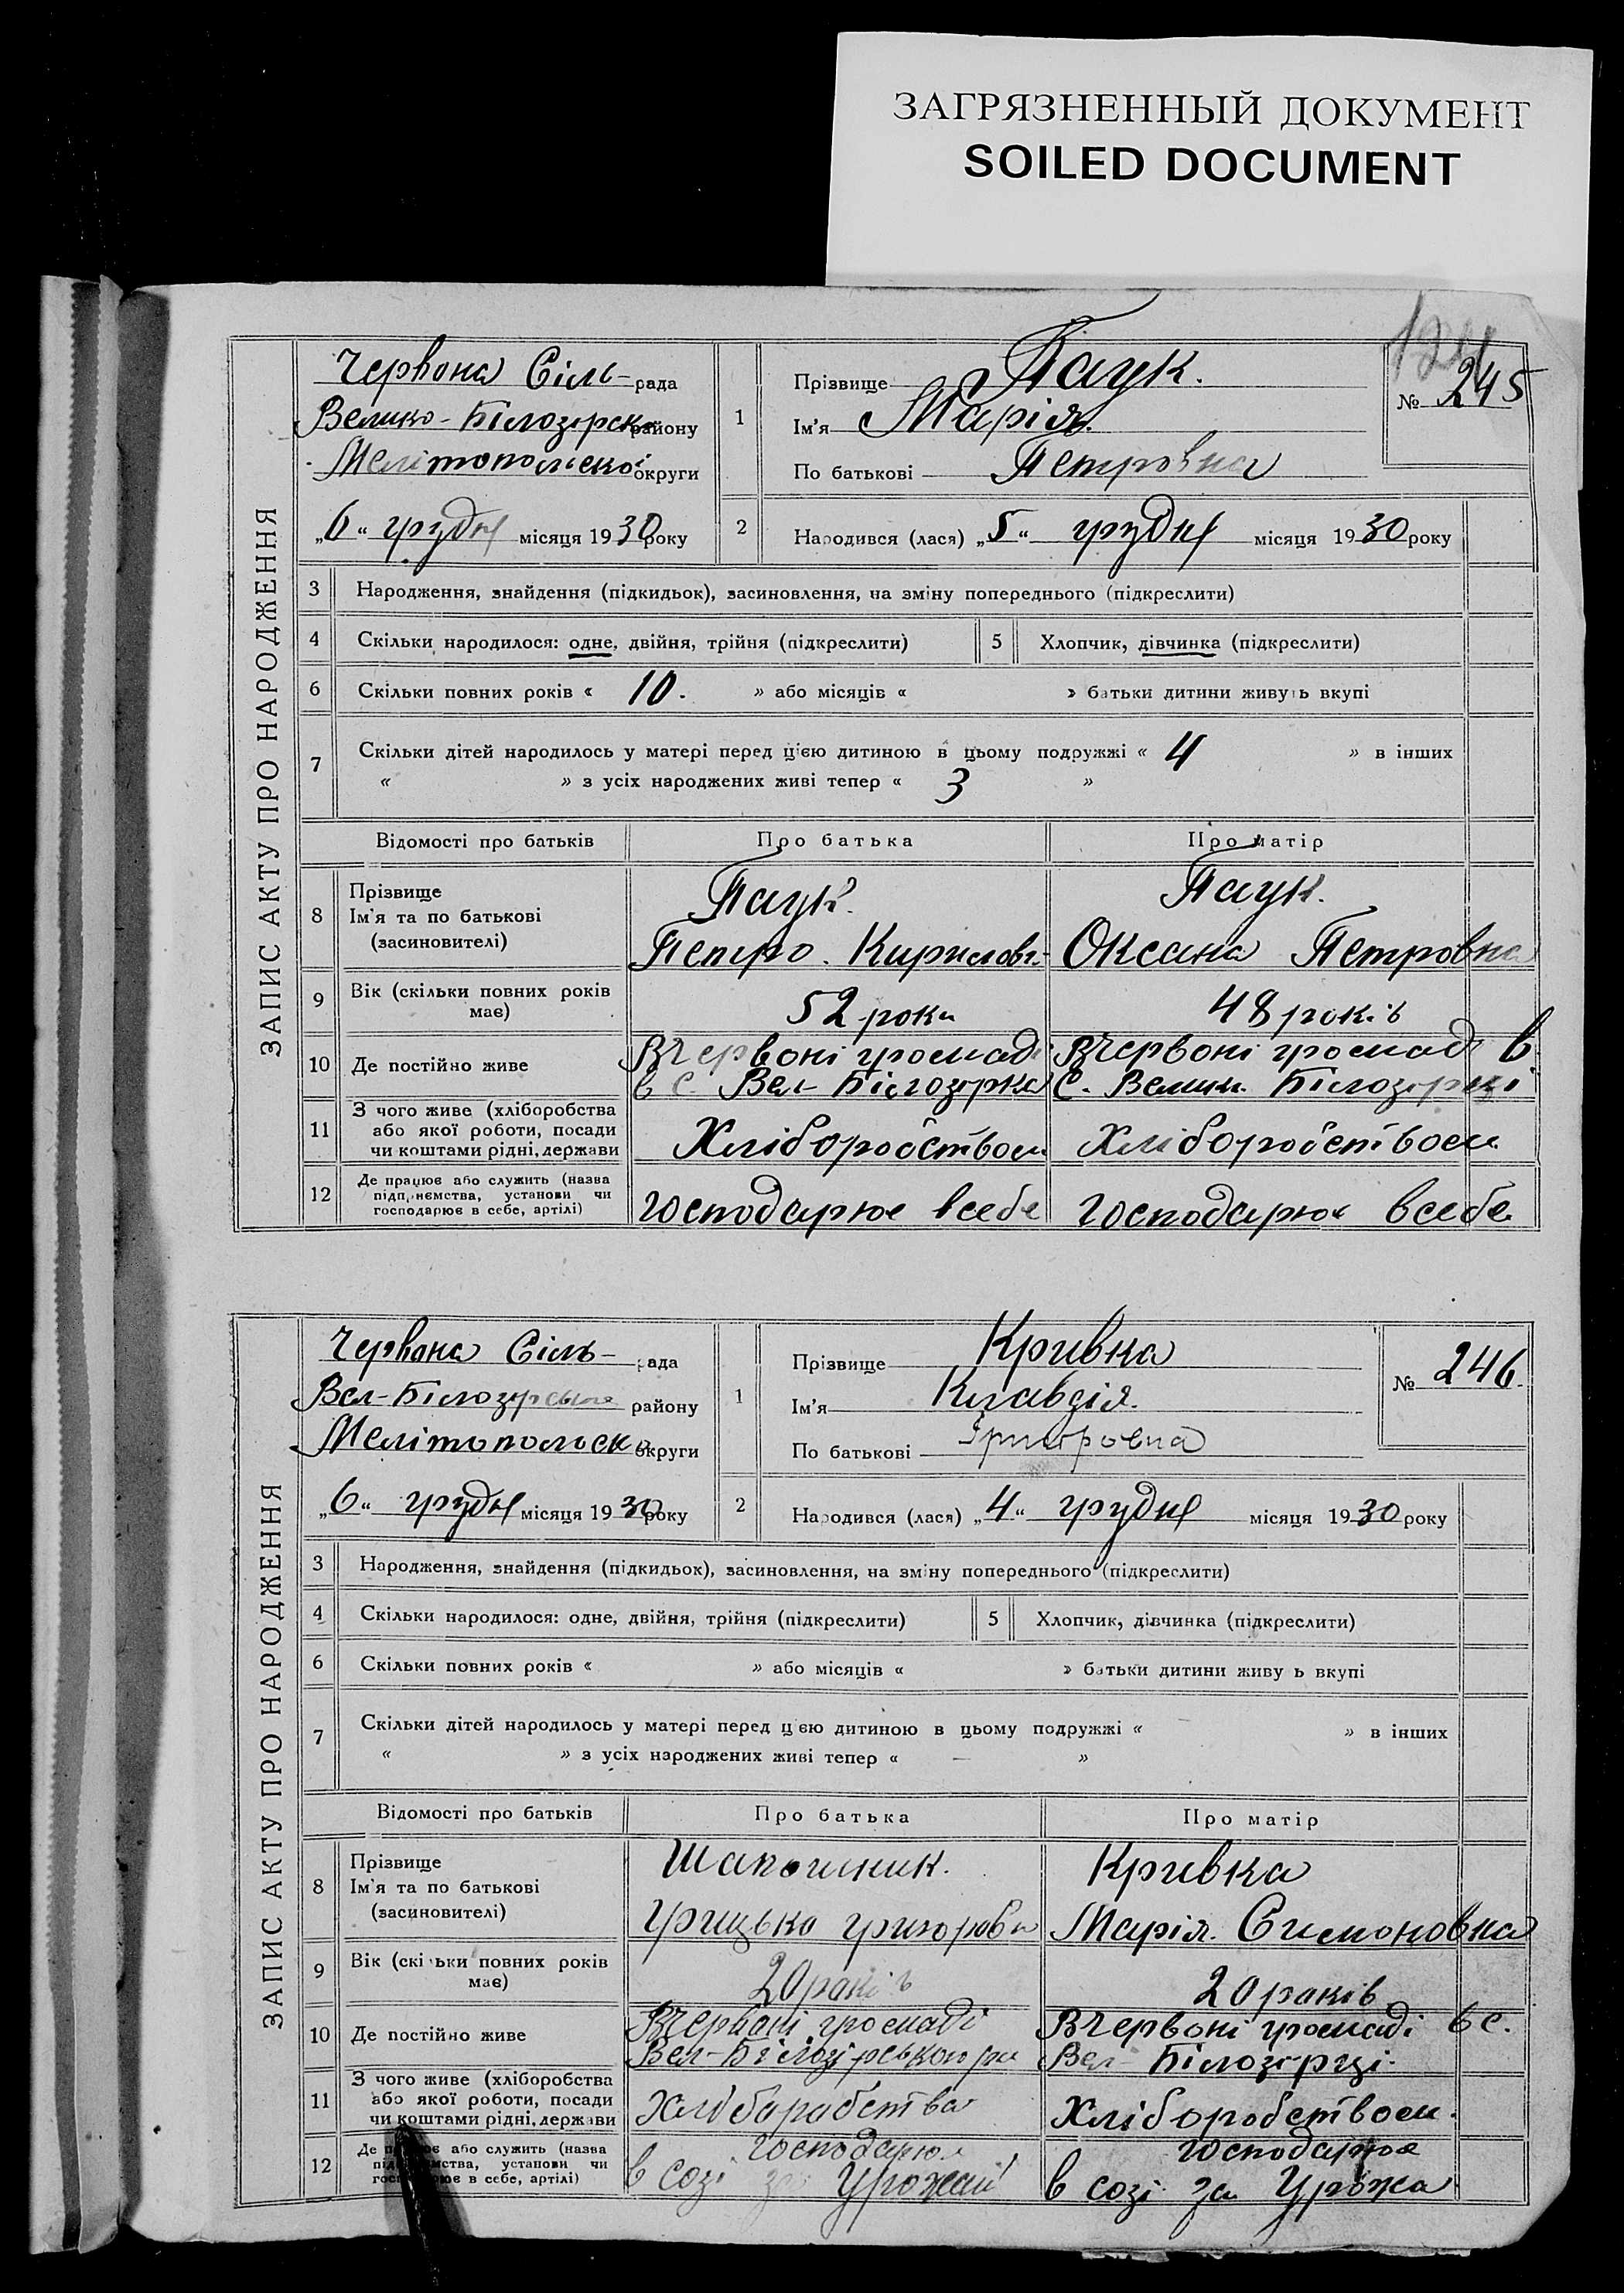 ЗАГРЯЗНЕННЫЙ ДОКУМЕНТ
SOILED DOCUMENT
ЗАПИС АКТУ ПРО НАРОДЖЕННЯ
Червона Сіль- рада
Велико-Білозірск району
Мелітопольскої округи
„6“ грудня місяця 1930 року
1
Прізвище Паук.
Ім'я Марія.
По батькові Петровна
№ 245
2 Народився (лася) „5“ грудня місяця 1930 року
3 Народження, знайдення (підкидьок), засиновлення, на зміну попереднього (підкреслити)
4 Скільки народилося: одне, двійня, трійня (підкреслити) 5 Хлопчик, дівчинка (підкреслити)
6 Скільки повних років « 10. » або місяців « » батьки дитини живуть вкупі
7 Скільки дітей народилось у матері перед цією дитиною в цьому подружжі « 4 » в інших
« » з усіх народжених живі тепер « 3 »
Відомості про батьків Про батька Про матір
8 Прізвище Ім'я та по батькові (засиновителі)
Паук. Паук.
Петро. Кирилов. Оксана Петровна
9 Вік (скільки повних років має) 52 роки 48 років
10 Де постійно живе
Вчервоні громаді Вчервоні громаді в
в с. Вел- Білозірка с. Велик. Білозірці
11 З чого живе (хліборобства або якої роботи, посади чи коштами рідні, держави
Хліборобством Хліборобством
12 Де працює або служить (назва підприємства, установи чи господарює в себе, артілі)
господарює всебе господарює всебе
ЗАПИС АКТУ ПРО НАРОДЖЕННЯ
Червона Сіль- рада
Вел-Білозірськ району
Мелітопольск округи
„6“ грудня місяця 1930 року
1
Прізвище Кривка
Ім'я Клавдія.
По батькові
№ 246.
2 Народився (лася) „4“ грудня місяця 1930 року
3 Народження, знайдення (підкидьок), засиновлення, на зміну попереднього (підкреслити)
4 Скільки народилося: одне, двійня, трійня (підкреслити) 5 Хлопчик, дівчинка (підкреслити)
6 Скільки повних років « » або місяців « » батьки дитини живу ь вкупі
7 Скільки дітей народилось у матері перед цією дитиною в цьому подружжі « – » в інших
« » з усіх народжених живі тепер « – »
Відомості про батьків Про батька Про матір
8 Прізвище Ім'я та по батькові (засиновителі)
Кривка
Грицько Григоров Марія. Симоновна
9 Вік (скільки повних років має) 20 років 20 років
10 Де постійно живе
Вчервоні громаді Вчервоні громаді в с.
Вел-Білозірського Вел- Білозірці.
11 З чого живе (хліборобства або якої роботи, посади чи коштами рідні, держави
Хліборобства Хліборобством.
12 Де працює або служить (назва підприємства, установи чи господарює в себе, артілі)
господарює господарює
в созі за Урожай в созі за Урожа